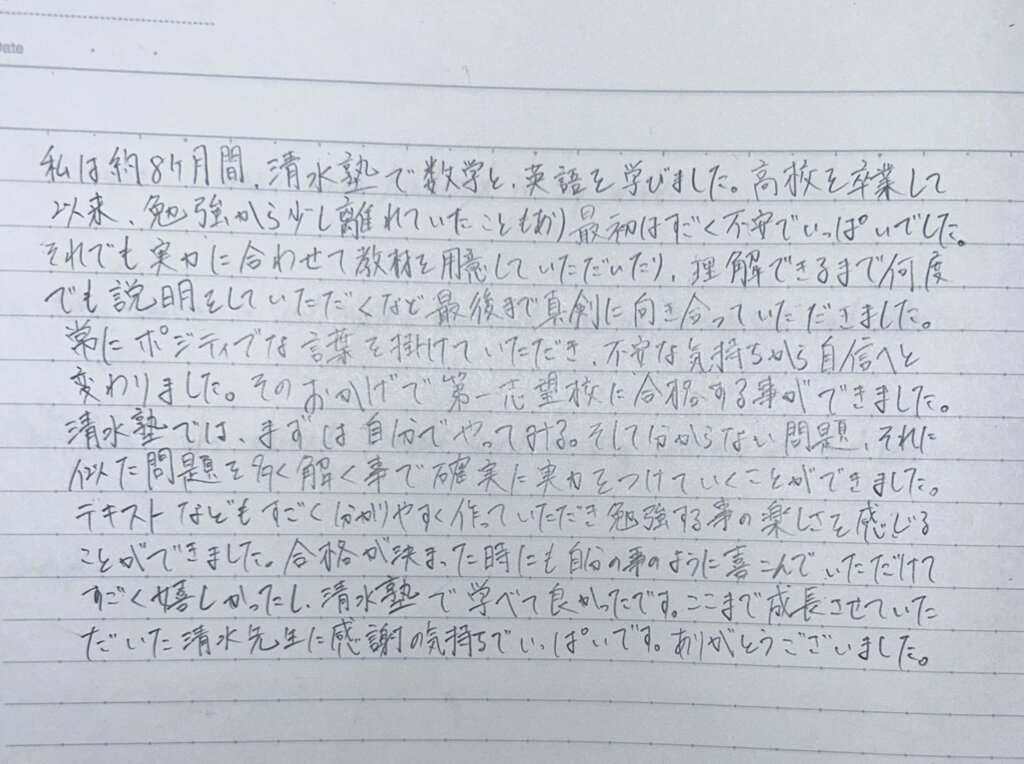 Date
私は約8ヶ月間、清水塾で数学と、英語を学びました。高校を卒業して
以来、勉強から少し離れていたこともあり最初はすごく不安でいっぱいでした。
それでも実力に合わせて教材を用意していただいたり、理解できるまで何度
でも説明をしていただくなど最後まで真剣に向き合っていただきました。
常にポジティブな言葉を掛けていただき、不安な気持ちから自信へと
変わりました。そのおかげで第一志望校に合格する事ができました。
清水塾では、まずは自分でやってみる。そして分からない問題、それに
似た問題を多く解く事で確実に実力をつけていくことができました。
テキストなどもすごく分かりやすく作っていただき勉強する事の楽しさを感じる
ことができました。合格が決まった時にも自分の事のように喜こんでいただけて
すごく嬉しかったし、清水塾で学べて良かったです。ここまで成長させていた
だいた清水先生に感謝の気持ちでいっぱいです。ありがとうございました。